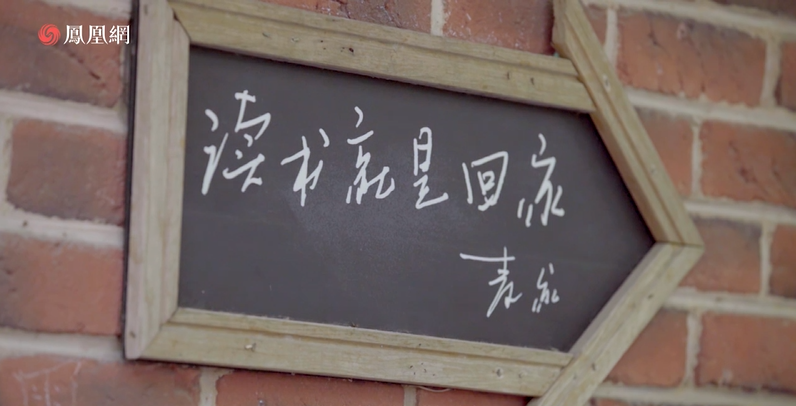 鳳凰網
读书就是回家
麦家